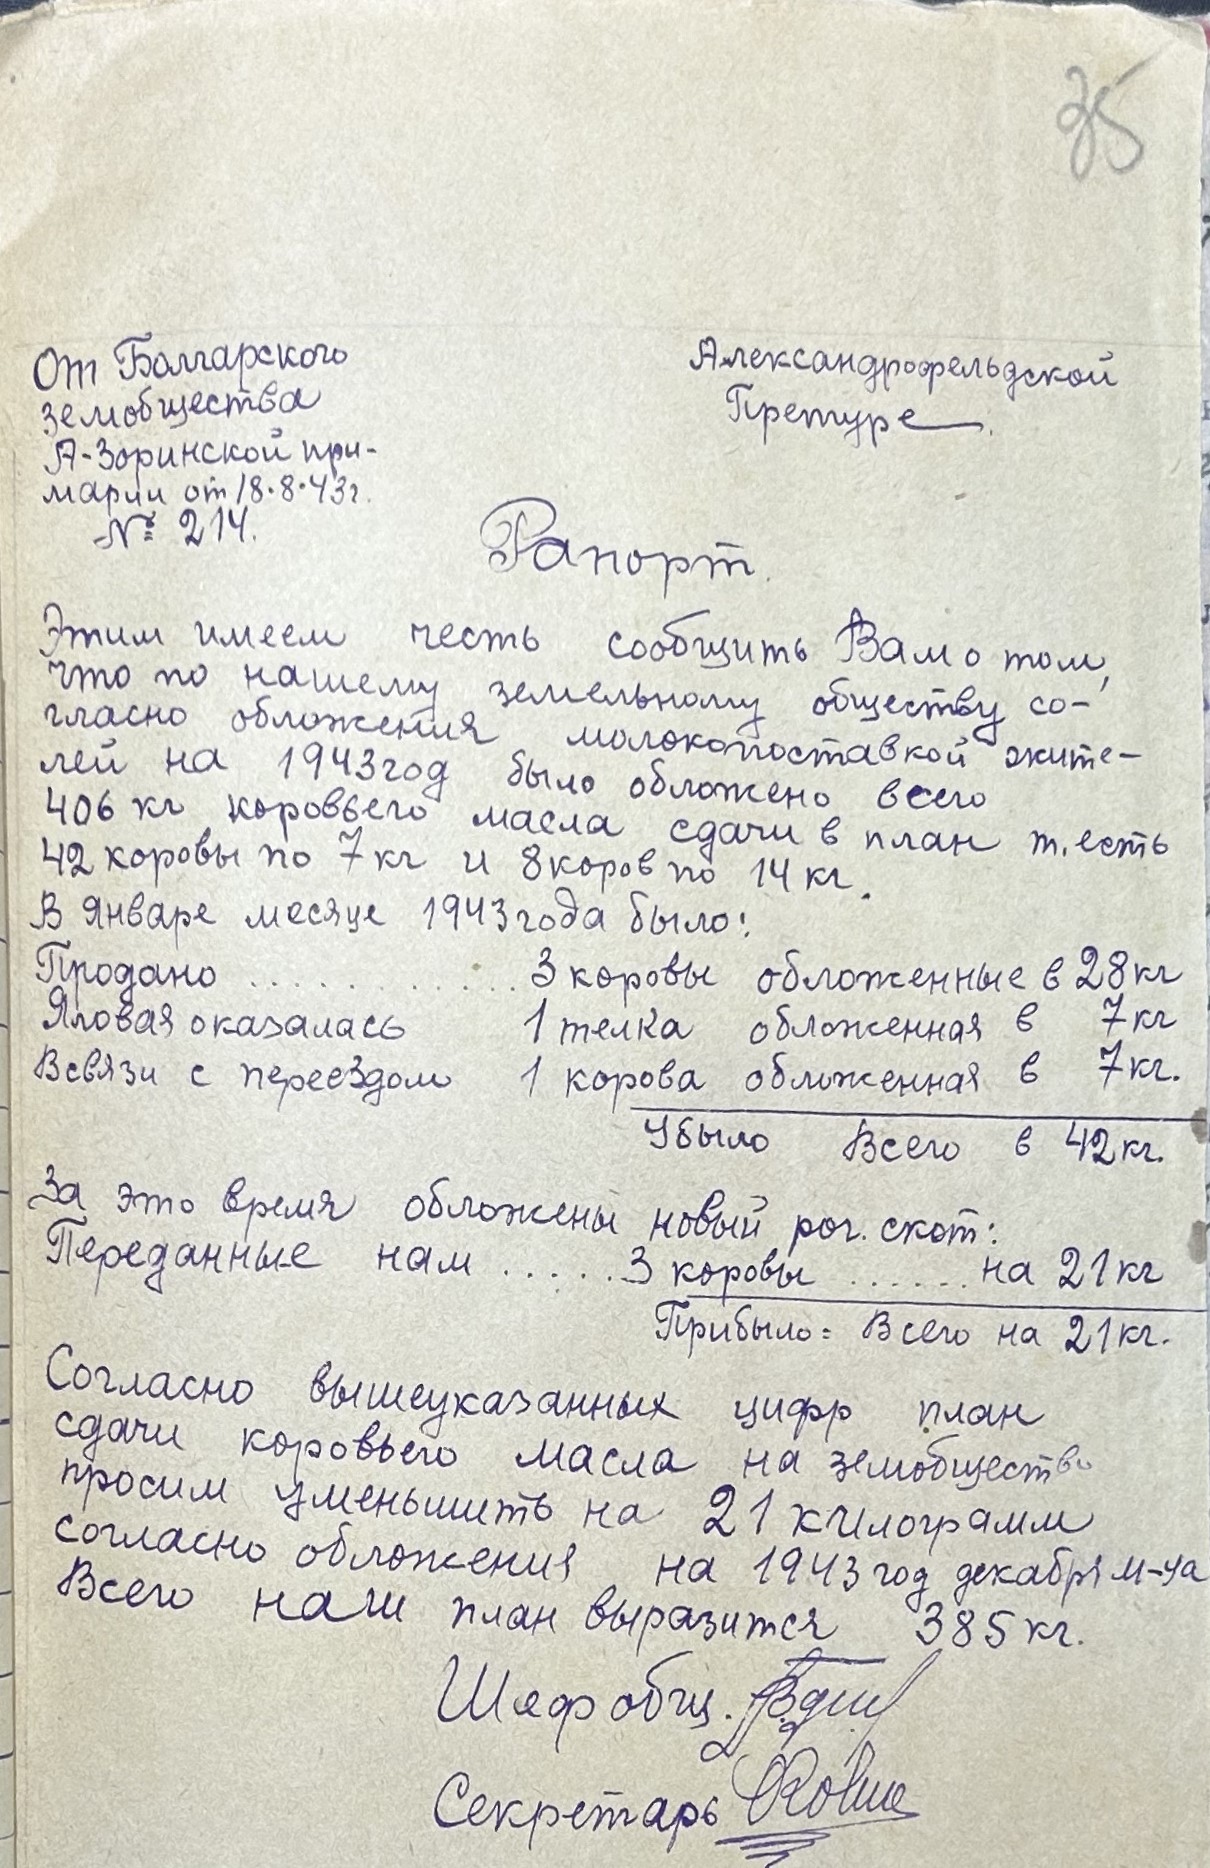 35
От Болгарского
земобщества
А-Зоринской при-
марии от 18.8.43г.
№ 214.
Александрофельдской
Претуре
Рапорт.
Этим имеем честь сообщить Вам о том,
что по нашему земельному обществу со-
гласно обложения молокопоставкой жите-
лей на 1943 год было обложено всего
406 кг коровьего масла сдачи в план т.есть
42 коровы по 7 кг и 8 коров по 14 кг.
В Январе месяце 1943 года было:
Продано ............ 3 коровы обложенные в 28 кг
Яловая оказалась 1 телка обложенная в 7 кг
Всвязи с переездом 1 корова обложенная в 7 кг.
Убыло Всего в 42 кг.
За это время обложены новый рог. скот:
Переданные нам ..... 3 коровы ...... на 21 кг
Прибыло: Всего на 21 кг.
Согласно вышеуказанных цифр план
сдачи коровьего масла на земобщество
просим уменьшить на 21 килограмм
согласно обложения на 1943 год декабря м-ца
Всего наш план выразится 385 кг.
Шеф общ.
Секретарь